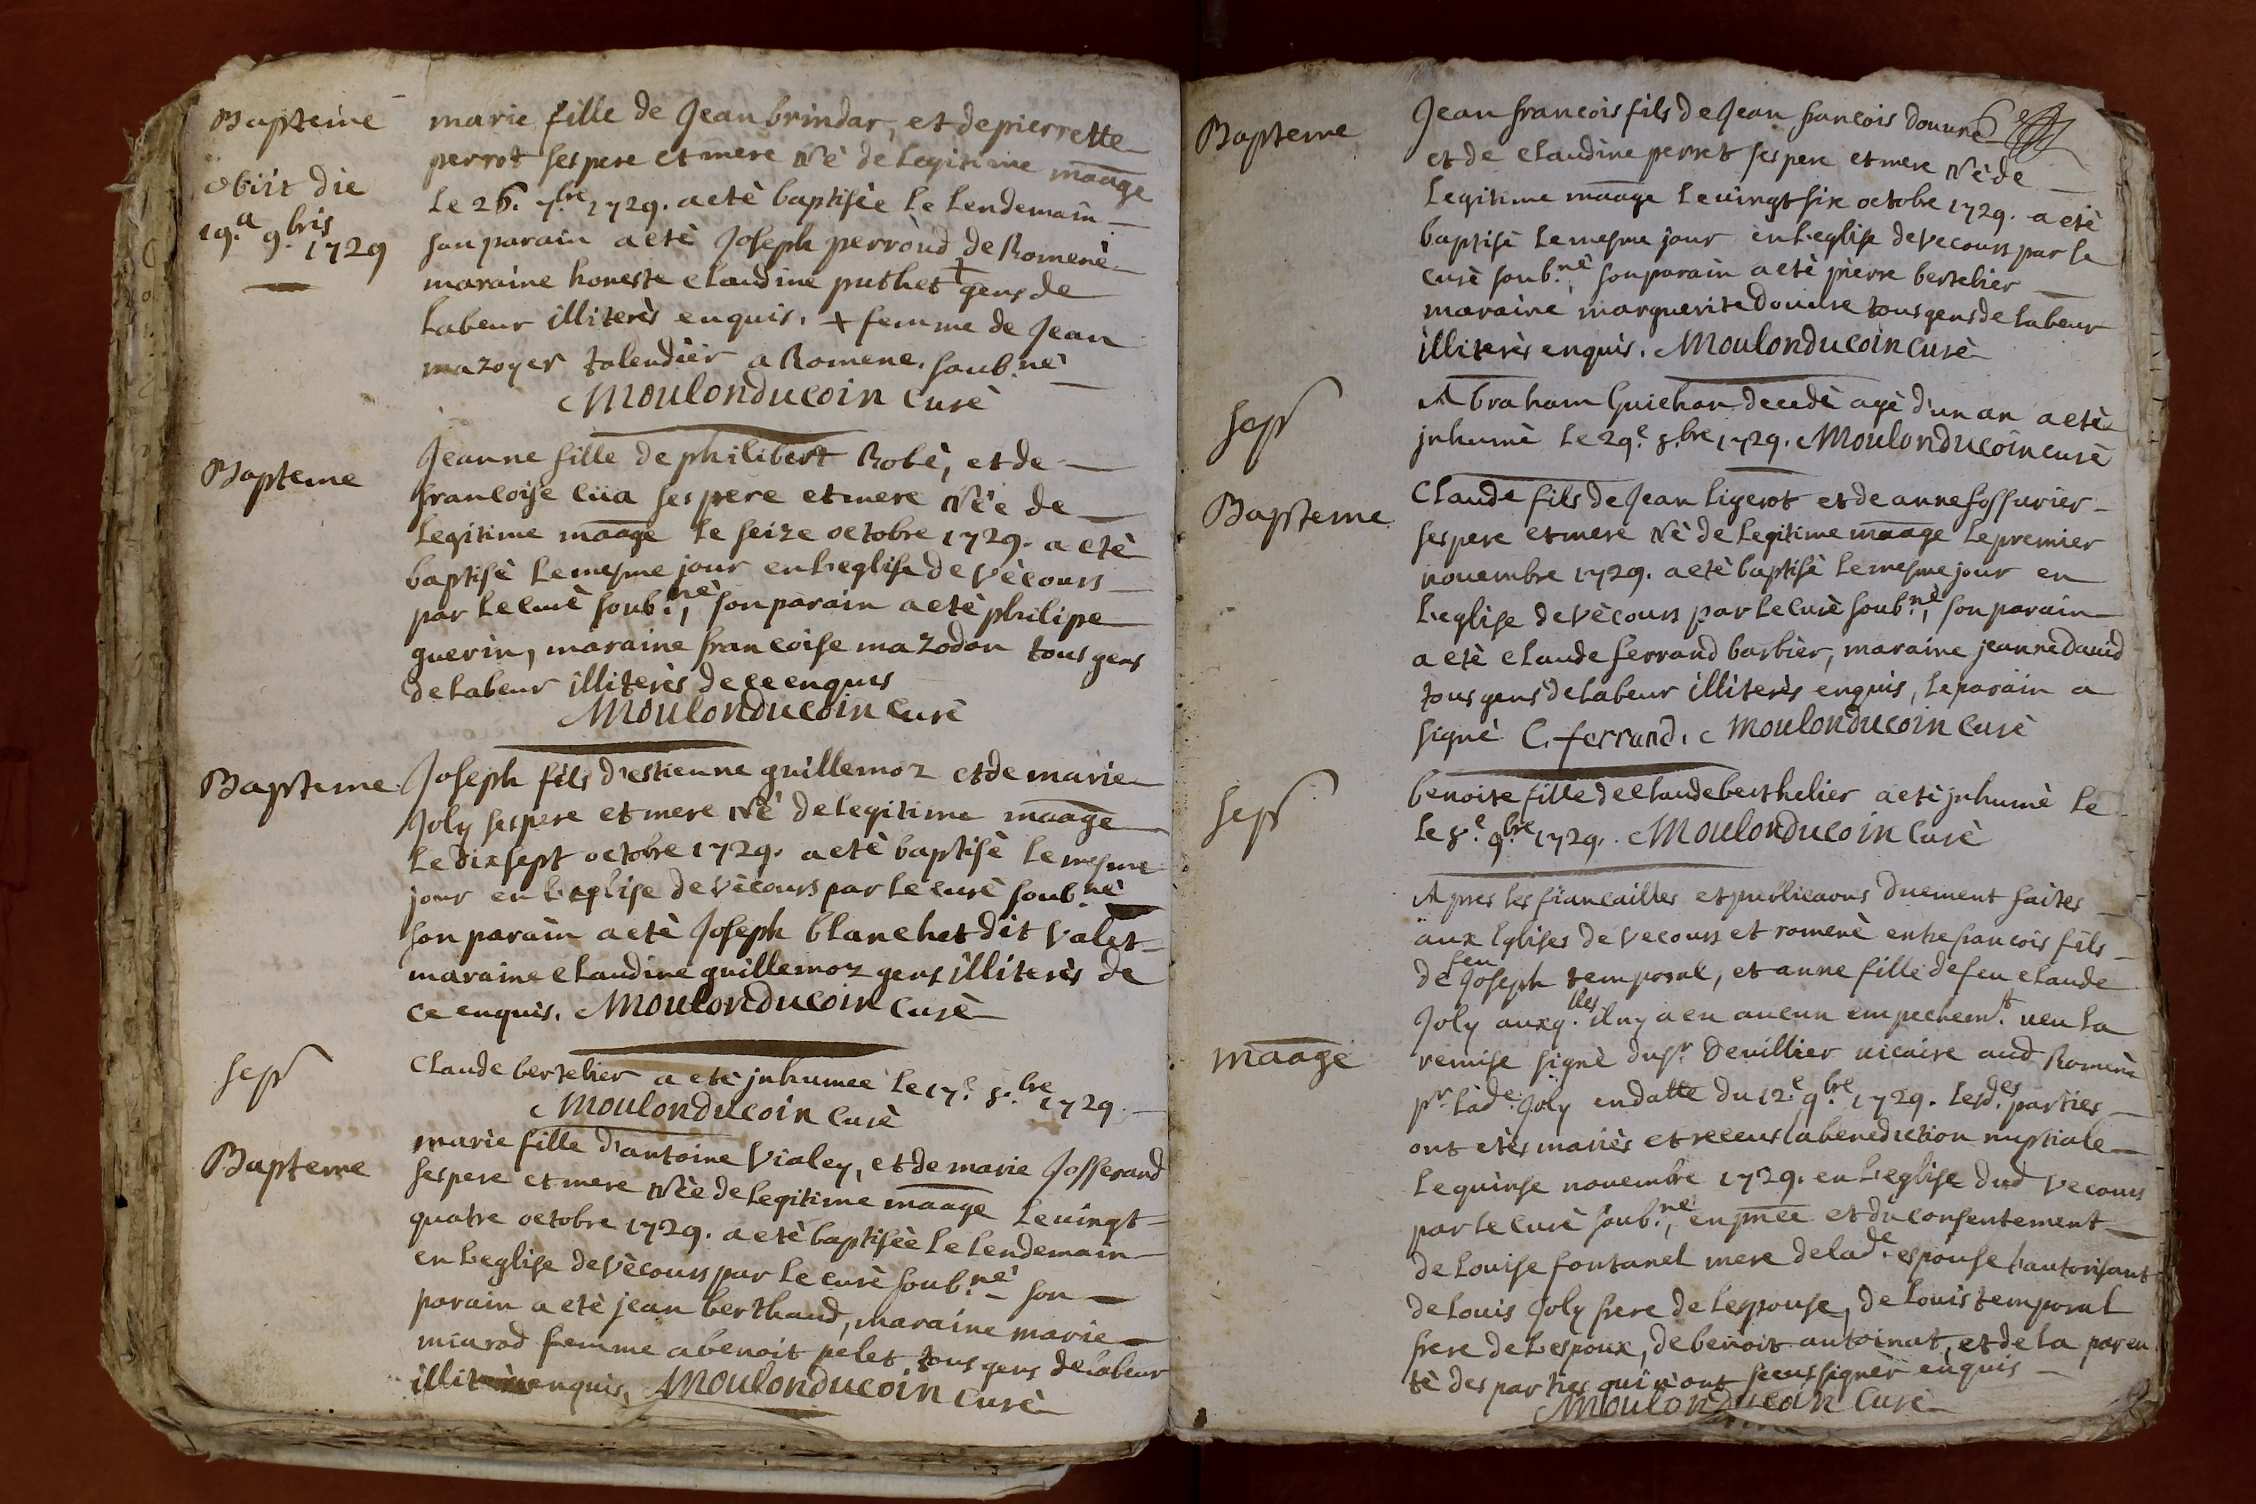 Bapteme
obiit die
19.a 9.bris 1729
marie fille de Jean brindar, et de pierrette
perrot ses pere et mere Né de Legitime maage
Le 26. 7.bre 1729. a eté baptisée Le Lendemain
son parain a eté Joseph perroud de Romené
maraine honeste claudine puthet + gens de
Labeur illiterés enquis. + femme de Jean
mazoyer talendier a Romene. soub.né
Moulonducoin Curé
Bapteme
Jeanne fille de philibert Robé, et de
francoise ciia ses pere et mere Née de
Legitime maage Le seize octobre 1729. a eté
baptisé Le mesme jour en L'eglise de Vécours
par Le curé soub.né, son parain a eté philipe
guerin, maraine francoise mazodon tous gens
de Labeur illiterés de ce enquis
Moulonducoin Curé
Bapteme
Joseph fils d'estienne guillemoz et de marie
Joly ses pere et mere Né de legitime maage
Le Dixsept octobre 1729. a eté baptisé Le mesme
jour en L'eglise de Vécours par Le curé soub.né
son parain a eté Joseph blanchet dit Valet
maraine claudine guillemoz gens illiterés de
ce enquis. Moulonducoin Curé
sepr
Claude bertelier a eté jnhumee Le 17.e 8.bre 1729.
Moulonducoin Curé
Bapteme
marie fille d'antoine Vialey, et de marie Josserand
ses pere et mere Née de Legitime maage Le uingt
quatre octobre 1729. a eté baptisée Le Lendemain
en L'eglise de Vécours par Le curé soub.né son
parain a eté jean berthaud, maraine marie
miarod femme a benoit pelet tous gens de labeur
illiterés enquis. Moulonducoin Curé
Bapteme
Jean francois fils de Jean francois douure
et de claudine perret ses pere et mere Né de
Legitime maage Le uingt six octobre 1729. a eté
baptisé Le mesme jour en L'eglise de Vecours par Le
curé soub.né, son parain a eté pierre bertelier
maraine marguerite Douure tous gens de Labeur
illiterés enquis. Moulonducoin Curé
sepr
Abraham Guichon decedé agé d'un an a eté
jnhumé Le 29.e 8.bre 1729. Moulonducoin curé
Bapteme
Claude fils de Jean ligerot et de anne fossurier
ses pere et mere Né de Legitime maage Le premier
nouembre 1729. a eté baptisé Le mesme jour en
L'eglise de Vécours par Le Curé soub.né, son parain
a eté claude ferrand barbier, maraine jeanne Dauid
tous gens de Labeur illiterés enquis, Le parain a
signé C. ferrand. Moulonducoin Curé
sepr
benoite fille de Claude berthelier a eté jnhumé Le
Le 8.e 9.bre 1729. Moulonducoin Curé
maage
Apres les fiancailles et publicaons Duement faites
aux Eglises de Vecours et romené entre francois fils
de feu Joseph temporal, et anne fille de feu claude
Joly auxq.lles il ny a eu aucun empechem.t ueu La
remise signé du sr. Deuillier uicaire aud Romené
pr. Lad.e Joly en datte du 12.e 9.bre 1729. Lesd.es parties
ont etés mariés et receus la benediction nuptiale
Le quinse nouembre 1729. en L'eglise dud Vecours
par Le Curé soub.né, en pnce et du consentement
de Louise fontanel mere de lad.e espouse L'autorisant
de Louis Joly frere de Lespouse, de Louis temporal
frere de L'espoux, de benoit antoinat, et de la paren
té des parties qui n'ont sceus signer enquis
Moulonducoin Curé